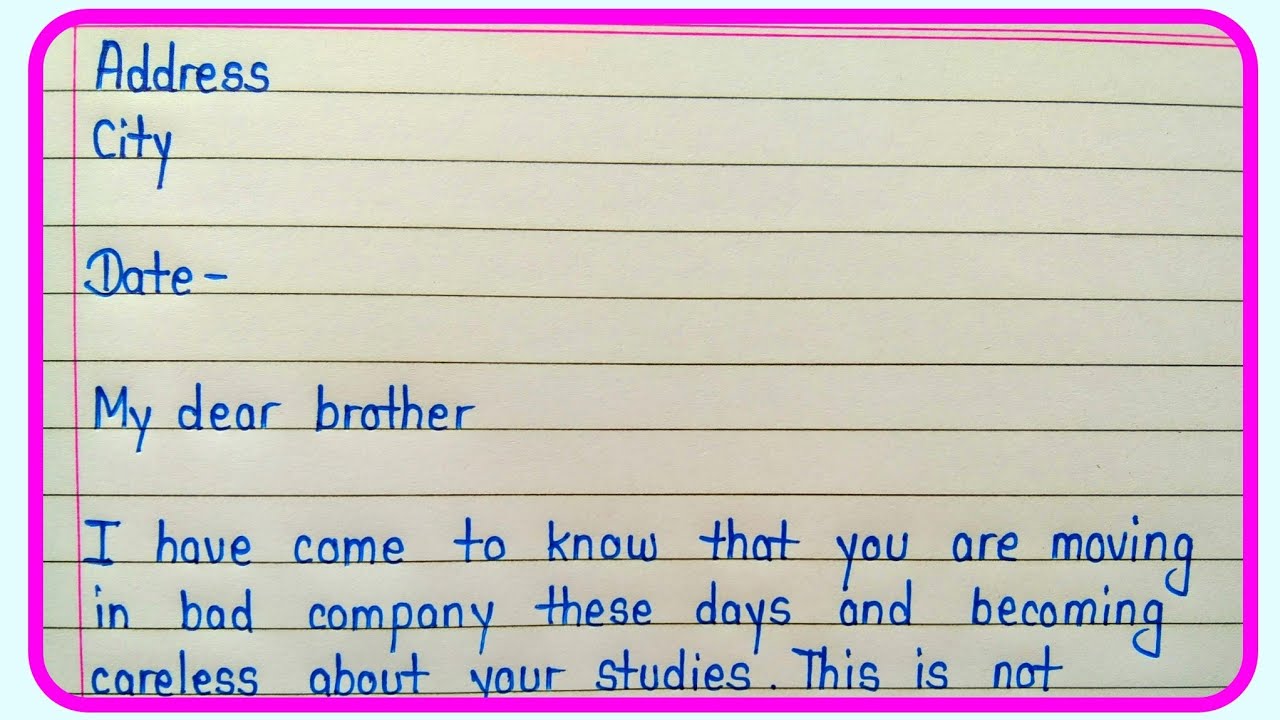 Address
City
Date -
My dear brother
I have come to know that you are moving
in bad company these days and becoming
careless about your studies. This is not